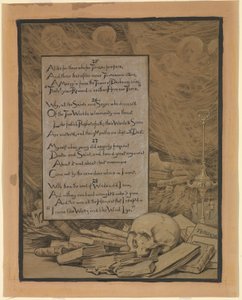 25
Alike for those who for To-day prepare,
And those that after some To-morrow stare,
A Muezzin from the Tower of Darkness cries,
"Fools! your Reward is neither Here nor There."
26
Why, all the Saints and Sages who discuss'd
Of the Two Worlds so learnedly are thrust
Like foolish Prophets forth; their Words to Scorn
Are scatter'd, and their Mouths are stopt with Dust.
27
Myself when young did eagerly frequent
Doctor and Saint, and heard great argument
About it and about: but evermore
Came out by the same door where in I went.
28
With them the seed of Wisdom did I sow,
And with my own hand wrought to make it grow;
And this was all the Harvest that I reap'd
"I came like Water, and like Wind I go."